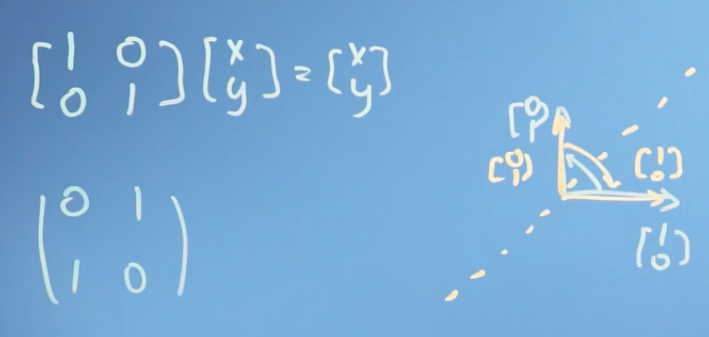 [1 0
0 1] [x
y] = [x
y]
(0 1
1 0)
[0
1]
[0
1]
[1
0]
[1
0]